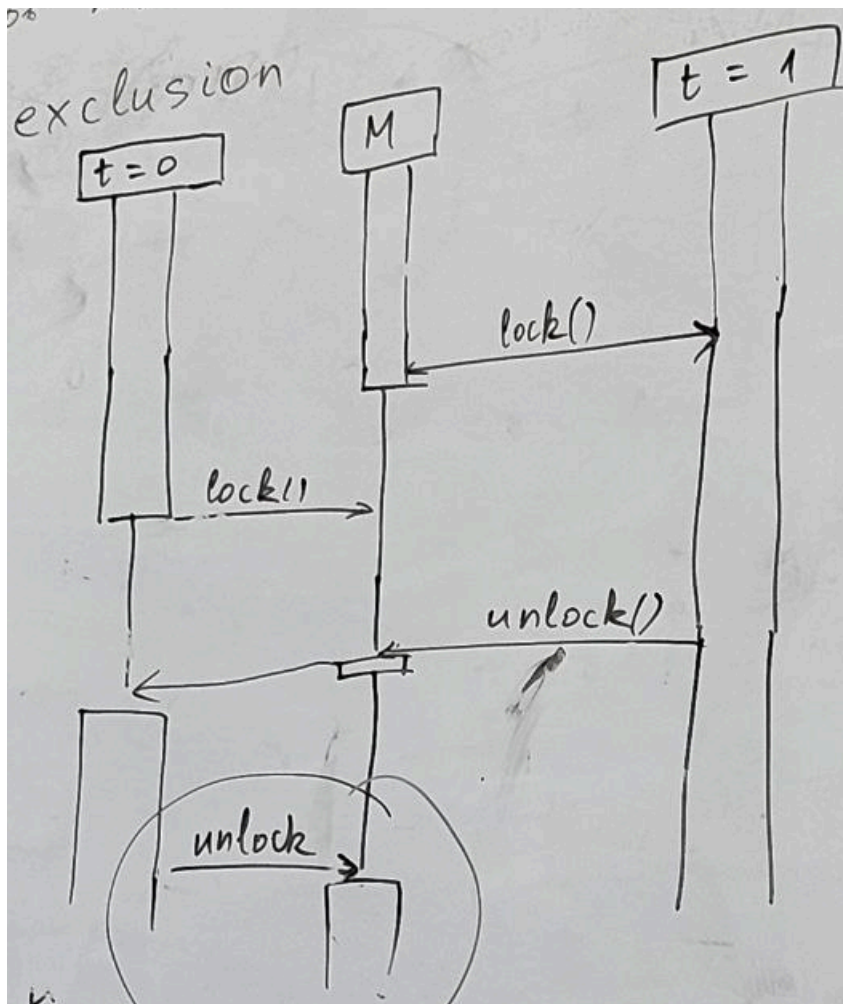 exclusion
t = 0
M
t = 1
lock()
lock()
unlock()
unlock